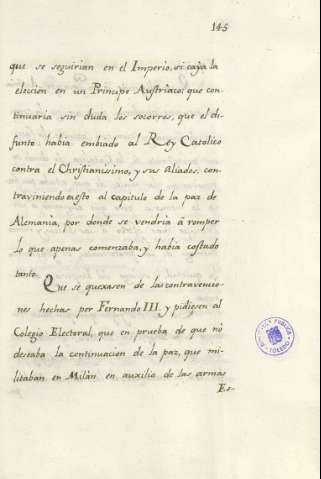 145
que se seguirian en el Imperio, si caýa la
eleccion en un Principe Austriaco; que con-
tinuaria sin duda los socorros, que el di-
funto habia embiado al Rey Catolico
contra el Christianissimo, y sus Aliados, con-
traviniendo en esto al capitulo de la paz de
Alemania, por donde se vendria á romper
lo que apenas comenzaba, y habia costado
tanto.
Que se quexasen de las contravencio-
nes hechas por Fernando III. y pidiesen al
Colegio Electoral, que en prueba de que nó
deseaba la continuacion de la paz, que mi-
litaban en Milàn en auxilio de las armas
Es-
TOLEDO